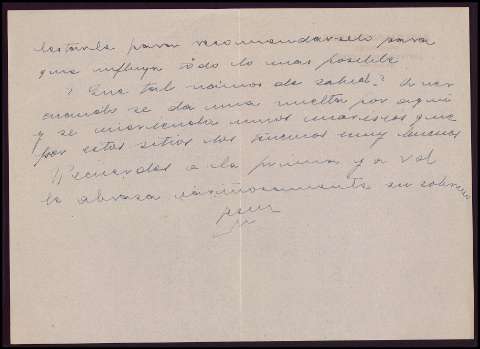 para recomendarselo para
que influya todo lo mas posible
? Que tal vamos de salud? A ver
cuando se da una vuelta por aqui
y se merienda unos mariscos que
por estos sitios los tenemos muy buenos
Recuerdos a la prima y a Vd
le abraza cariñosamente su sobrino